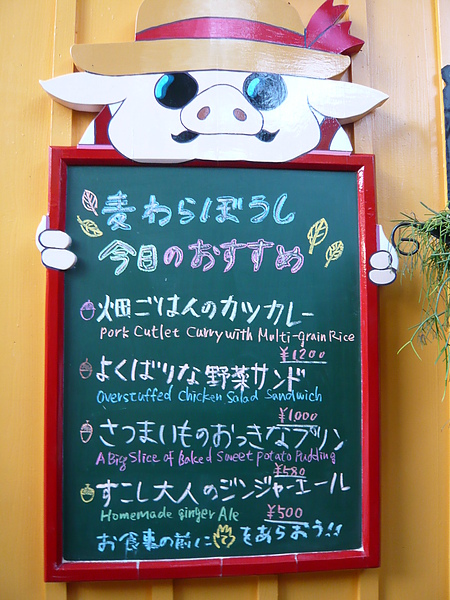 麦わらぼうし
今日のおすすめ
畑ごはんのカツカレー
Pork Cutlet Curry with Multi-grain Rice
¥1200
よくばりな野菜サンド
Overstuffed Chicken Salad Sandwich
¥1000
さつまいものおっきなプリン
A Big Slice of Baked Sweet potato Pudding
¥580
すこし大人のジンジャーエール
Homemade ginger Ale
¥500
お食事の前に をあらおう!!